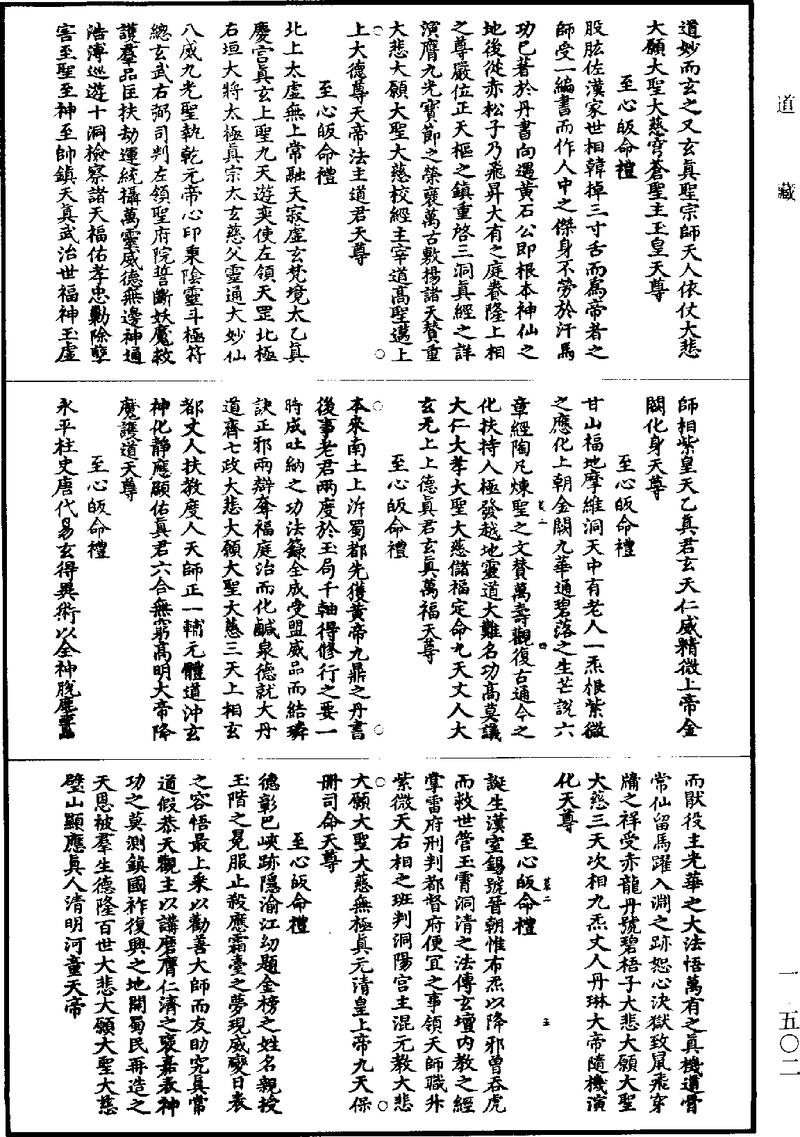 道藏
一 五〇二
道妙而玄之又玄真聖宗師天人依仗大悲
大願大聖大慈穹蒼聖主玉皇天尊
至心皈命禮
股肱佐漢家世相韓掉三寸舌而爲帝者之
師受一編書而作人中之傑身不勞於汗馬
功已著於丹書向遇黃石公即根本神仙之
地後從赤松子乃飛昇大有之庭眷隆上相
之尊嚴位正天樞之鎮重啓三洞真經之詳
演膺九光寶節之榮襃萬古敷揚諸天贊重
大悲大願大聖大慈校經主宰道高聖邁上
上大德尊天帝法主道君天尊
至心皈命禮
北上太虛無上常融天寂虛玄梵境太乙真
慶宮真玄上聖九天遊奕使左領天罡北極
右垣大將太極真宗太玄慈父靈通大妙仙
八威九光聖執乾元帝心印秉陰靈斗極符
總玄武右弼司判左領聖府院誓斷妖魔救
護羣品匡扶劫運統攝萬靈威德無邊神通
浩溥巡遊十洞檢察諸天福佑孝忠勦除孽
害至聖至神至師鎮天真武治世福神玉虛
師相紫皇天乙真君玄天仁威精微上帝金
闕化身天尊
至心皈命禮
甘山福地摩維洞天中有老人一炁根紫微
之應化上朝金闕九華通碧落之生芒說六
章經陶凡煉聖之文贊萬壽觀復古通今之
化扶持人極發越地靈道大難名功高莫議
大仁大孝大聖大慈儲福定命九天丈人大
玄无上上德真君玄真萬福天尊
至心皈命禮
本來南土上泝蜀都先獲黃帝九鼎之丹書
後事老君兩度於玉局千軸得修行之要一
時成吐納之功法籙全成受盟威品而結璘
訣正邪兩辯奪福庭治而化鹹泉德就大丹
道齊七政大悲大願大聖大慈三天上相玄
都丈人扶教度人天師正一輔元體道沖玄
神化靜應顯佑真君六合無窮高明大帝降
魔護道天尊
至心皈命禮
永平柱史唐代易玄得異術以全神脫塵寰
而厭役主光華之大法悟萬有之真機遺骨
常仙留馬躍入淵之跡恕心決獄致鼠飛穿
牗之祥受赤龍丹號碧梧子大悲大願大聖
大慈三天次相九炁丈人丹琳大帝隨機演
化天尊
至心皈命禮
誕生漢室錫號晉朝惟布炁以降邪曾吞虎
而救世管玉霄洞清之法傳玄壇内教之經
掌雷府刑判都督府便宜之事領天師職升
紫微天右相之班判洞陽宫主混元教大悲
大願大聖大慈無極真元清皇上帝九天保
册司命天尊
至心皈命禮
德彰巴峽跡隱渝江幼題金榜之姓名親授
玉階之冕服止殺應霜臺之夢現威變日表
之容悟最上乘以勸善大師而友助究真常
道假恭天觀主以講磨膺仁濟之襃嘉表神
功之莫測鎮國祚復興之地開蜀民再造之
天恩被羣生德隆百世大悲大願大聖大慈
璧山顯應真人清明河童天帝